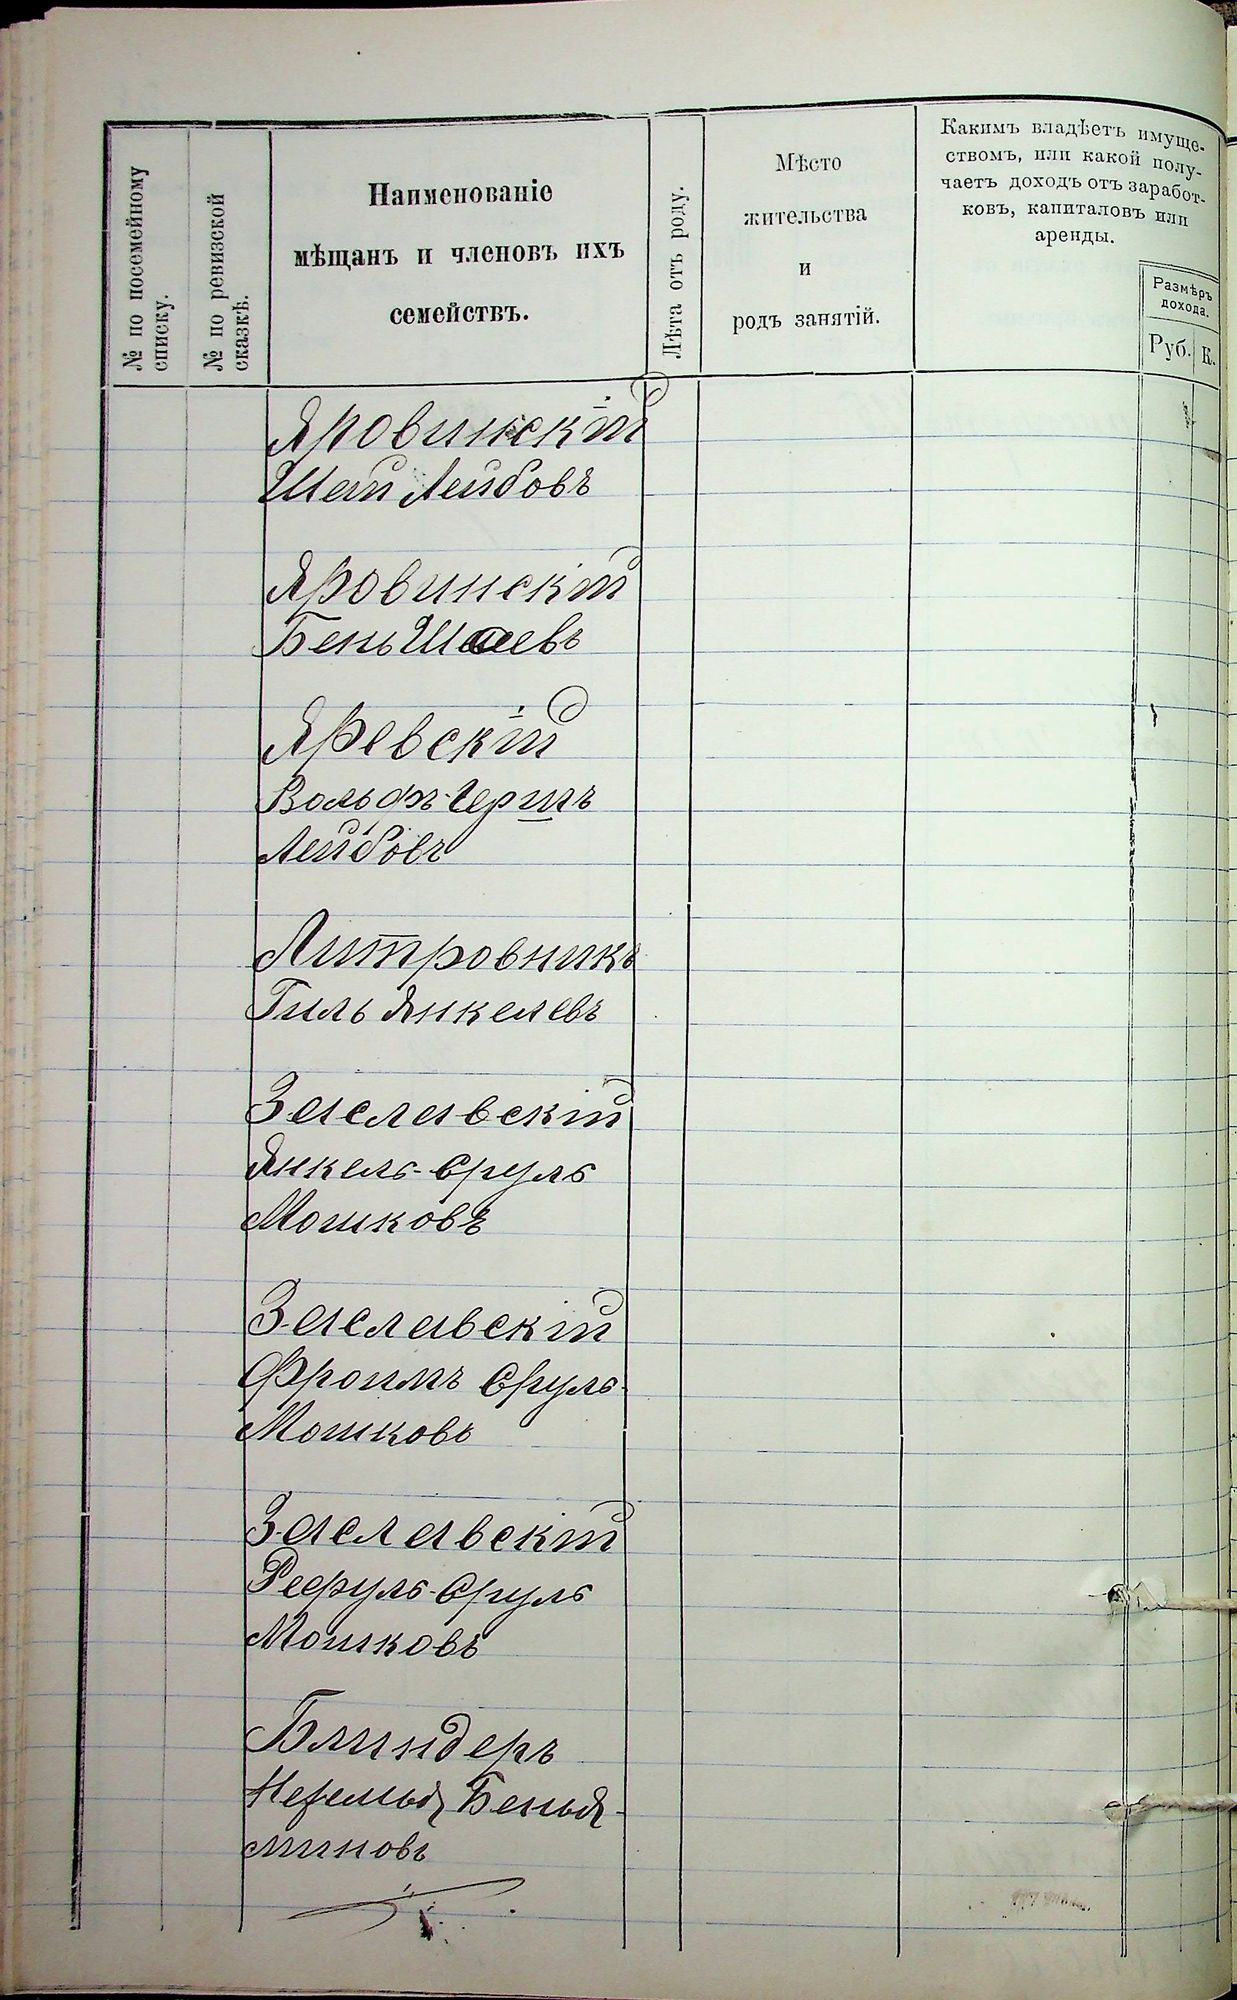 № по посемейному
списку.
№ по ревизской
сказкѣ.
Наименованіе
мѣщанъ и членовъ ихъ
семействъ.
Лѣта отъ роду.
Мѣсто
жительства
и
родъ занятій.
Какимъ владѣетъ имуще-
ствомъ, или какой полу-
чаетъ доходъ отъ заработ-
ковъ, капиталовъ или
аренды.
Размѣръ
дохода.
Руб.
К.
Яровинскій
Шай Лейбовъ
Яровинскій
Бень Шаевъ
Яревскій
Вольфъ-Гершъ
Лейбовъ
Литровникъ
Гиль Янкелевъ
Заславскій
Янкель-Сруль
Мошковъ
Заславскій
Фроимъ Сруль-
Мошковъ
Заславскій
Рефуль-Сруль
Мошковъ
Блиндеръ
Нехемья Бенья-
миновъ